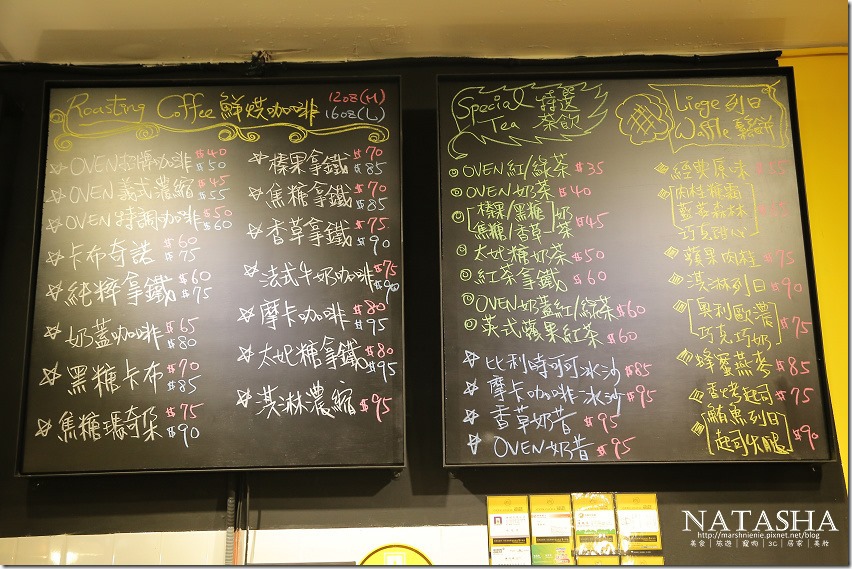 Roasting Coffee 鮮烘咖啡 12oz(M)
16oz(L)
☆OVEN招牌咖啡 $40
$50
☆OVEN義式濃縮 $45
$55
☆OVEN特調咖啡 $50
$60
☆卡布奇諾 $60
$75
☆純粹拿鐵 $60
$75
☆奶蓋咖啡 $65
$80
☆黑糖卡布 $70
$85
☆焦糖瑪奇朵 $75
$90
☆榛果拿鐵 $70
$85
☆焦糖拿鐵 $70
$85
☆香草拿鐵 $75
$90
☆法式牛奶咖啡 $75
$90
☆摩卡咖啡 $80
$95
☆太妃糖拿鐵 $80
$95
☆淇淋濃縮 $95
Special 特選
Tea 茶飲
OVEN 紅/綠茶 $35
OVEN 奶茶 $40
榛果/黑糖 奶
焦糖/香草 茶 $45
太妃糖奶茶 $50
紅茶拿鐵 $60
OVEN奶蓋紅/綠茶 $60
英式蘋果紅茶 $60
☆比利時可可冰沙 $85
☆摩卡咖啡冰沙 $95
☆香草奶昔 $95
☆OVEN奶昔 $95
Liege 列日
Waffle 鬆餅
經典原味
肉桂糖霜
藍莓森林
巧克甜心
蘋果肉桂 $75
淇淋列日 $90
奧利歐濃
巧克巧奶 $75
蜂蜜燕麥 $85
香烤起司 $75
鮪魚列日
起司火腿 $90
NATASHA
http://marshnienie.pixnet.net/blog
美食|旅遊|寵物|3C|居家|美妝